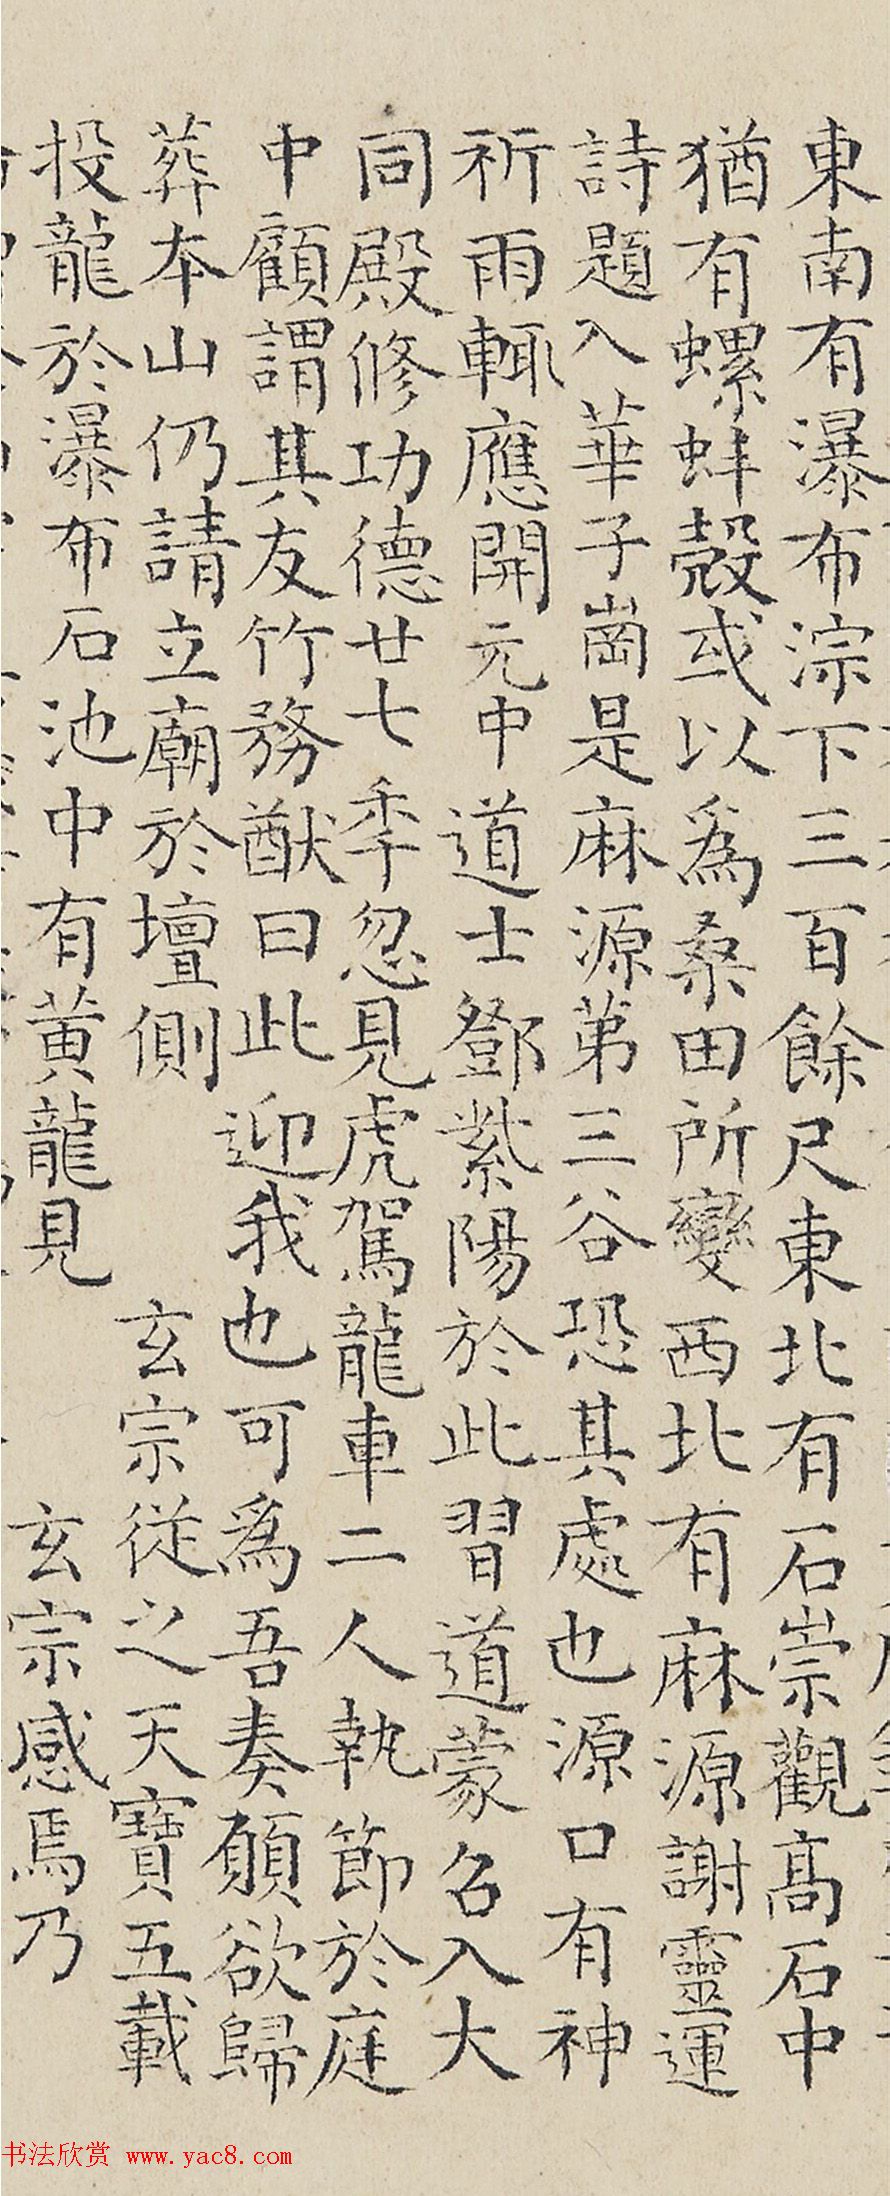 東南有瀑布淙下三百餘尺東北有石崇觀髙石中
猶有螺蚌殼或以為桑田所變西北有麻源謝靈運
詩題入華子崗是麻源第三谷恐其處也源口有神
祈雨輒應開元中道士鄧紫陽於此習道蒙召入大
同殿修功德廿七季忽見虎駕龍車二人執節於庭
中顧謂其友竹務猷曰此迎我也可為吾奏願欲歸
葬本山仍請立廟於壇側 玄宗従之天寶五載
投龍於瀑布石池中有黄龍見 玄宗感焉乃
书法欣赏 www.yac8.com